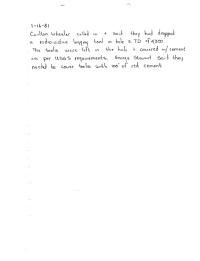 1-16-81
Carlton Wheeler called in + said they had dropped
a radio-active logging tool in hole @ TD of 4300'
The tools were left in the hole & covered w/cement
as per USGS requirements. George Stewart said they
needed to cover tools with 100' of red cement